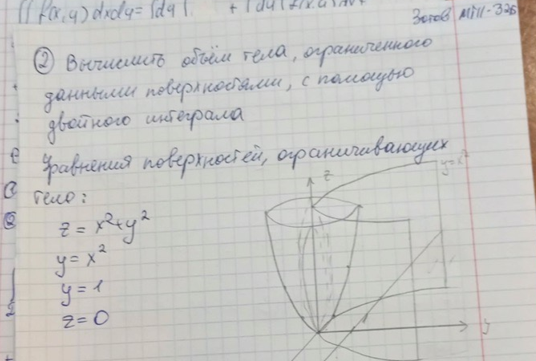 ∫∫ f(x,y) dxdy = ∫dy ∫ + ∫dy ∫
Зотов МТП-32Б
② Вычислить объём тела, ограниченного
данными поверхностями, с помощью
двойного интеграла
Уравнения поверхностей, ограничивающих
тело:
z = x²+y²
y = x²
y = 1
z = 0
z
y=x²
y